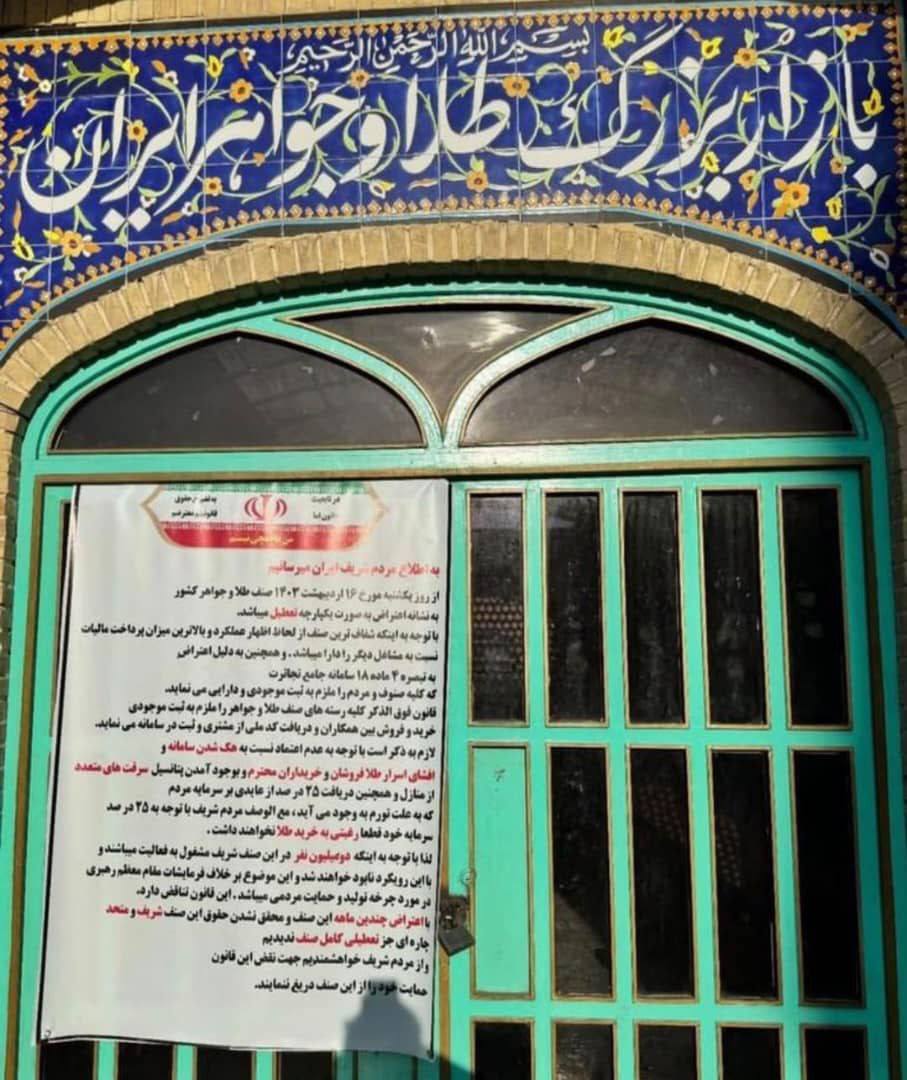 بسم الله الرحمن الرحیم
بازار بزرگ طلا و جواهر ایران
به اطلاع مردم شریف ایران میرسانیم
از روز یکشنبه مورخ ۱۶ اردیبهشت ۱۴۰۳ صنف طلا و جواهر کشور
به نشانه اعتراض به صورت یکپارچه تعطیل میباشد.
با توجه به اینکه شفاف ترین صنف از لحاظ اظهار عملکرد و بالاترین میزان پرداخت مالیات
نسبت به مشاغل دیگر را دارا میباشد . و همچنین به دلیل اعتراض
به تبصره ۴ ماده ۱۸ سامانه جامع تجارت
که کلیه صنوف و مردم را ملزم به ثبت موجودی و دارایی می نماید.
قانون فوق الذکر کلیه رسته های صنف طلا و جواهر را ملزم به ثبت موجودی
خرید و فروش بین همکاران و دریافت کد ملی از مشتری و ثبت در سامانه می نماید.
لازم به ذکر است با توجه به عدم اعتماد نسبت به هک شدن سامانه و
افشای اسرار طلا فروشان و خریداران محترم و بوجود آمدن پتانسیل سرقت های متعدد
از منازل و همچنین دریافت ۲۵ در صد از عایدی بر سرمایه مردم
که به علت تورم به وجود می آید ، مع الوصف مردم شریف با توجه به ۲۵ در صد
سرمایه خود قطعا رغبتی به خرید طلا نخواهند داشت .
لذا با توجه به اینکه دومیلیون نفر در این صنف شریف مشغول به فعالیت میباشند و
با این رویکرد نابود خواهند شد و این موضوع بر خلاف فرمایشات مقام معظم رهبری
در مورد چرخه تولید و حمایت مردمی میباشد . این قانون تناقض دارد.
با اعتراض چندین ماهه این صنف و محقق نشدن حقوق این صنف شریف و متحد
چاره ای جز تعطیلی کامل صنف ندیدیم
و از مردم شریف خواهشمندیم جهت نقض این قانون
حمایت خود را از این صنف دریغ ننمایند.